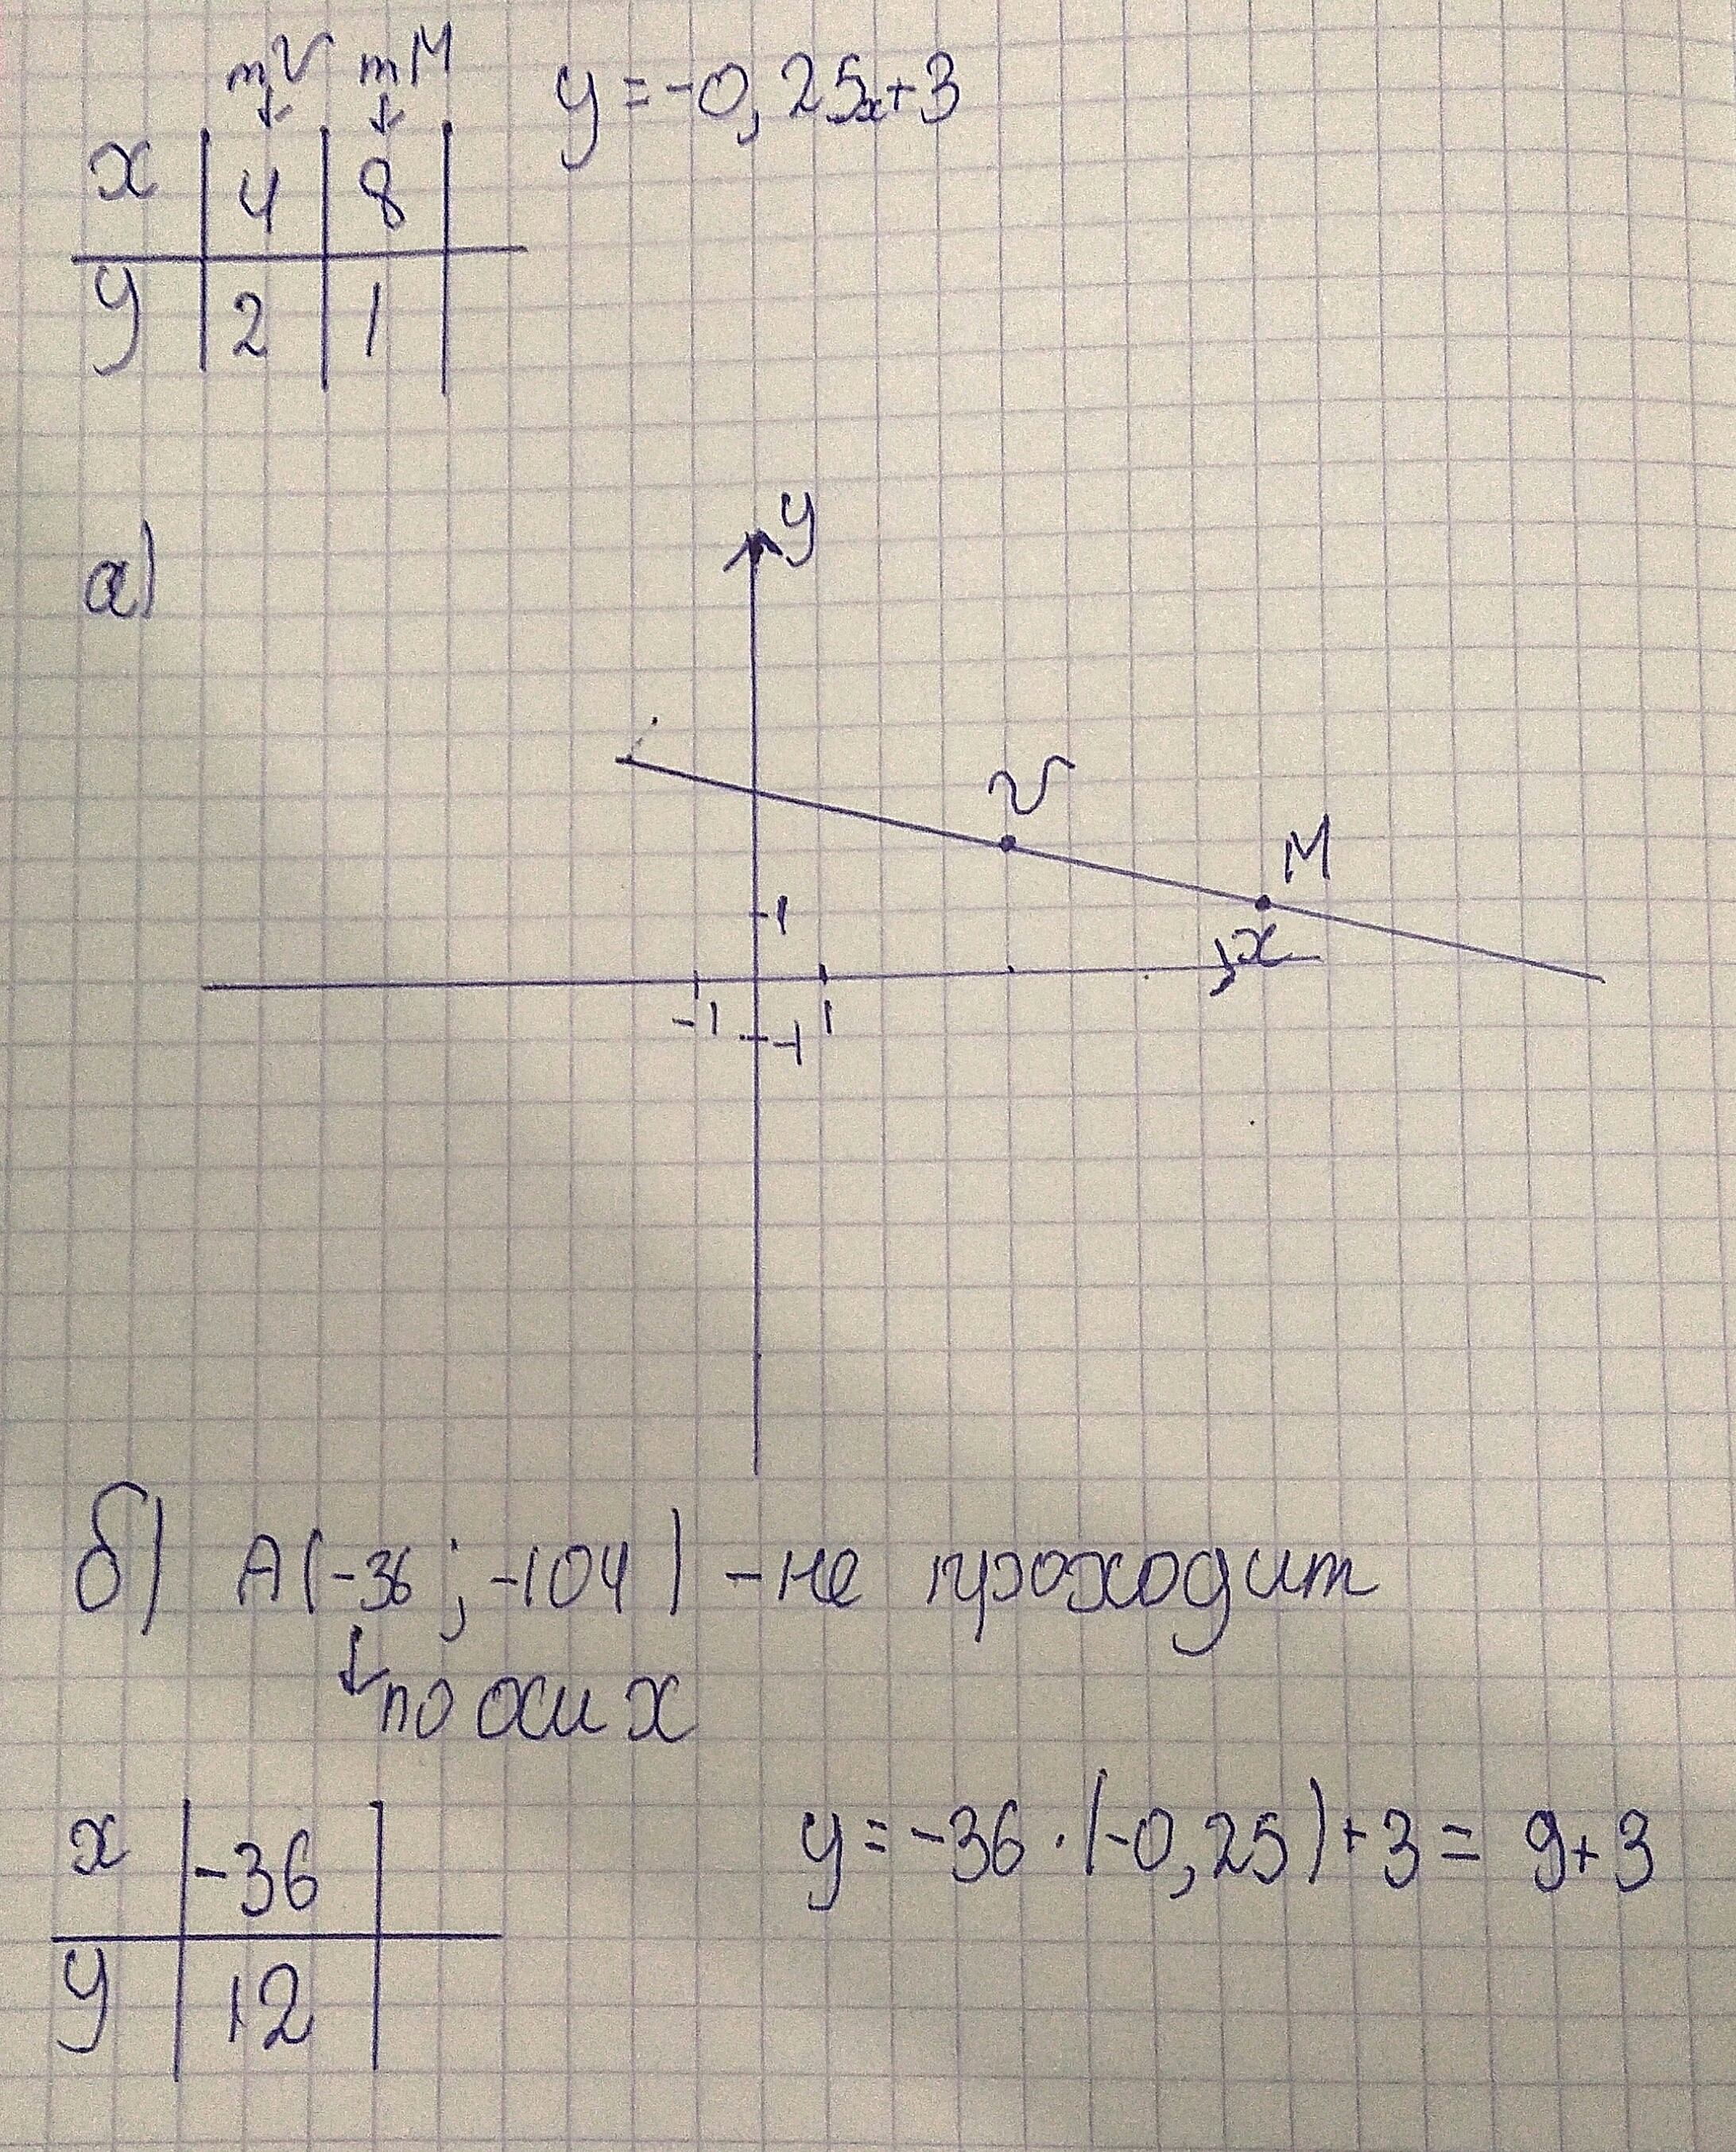 т V т M
y = -0,25x+3
x | 4 | 8 |
y | 2 | 1 |
а)
y
V
M
1
x
-1 1
-1
б) A(-36 ; -104) - не проходит
по оси x
x | -36 |
y = -36 · (-0,25) + 3 = 9+3
y | 12 |